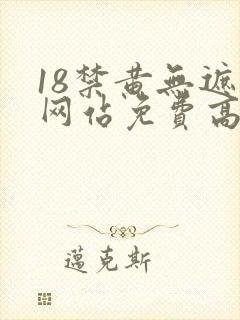 18禁黄無遮
网佔免費高
邁克斯